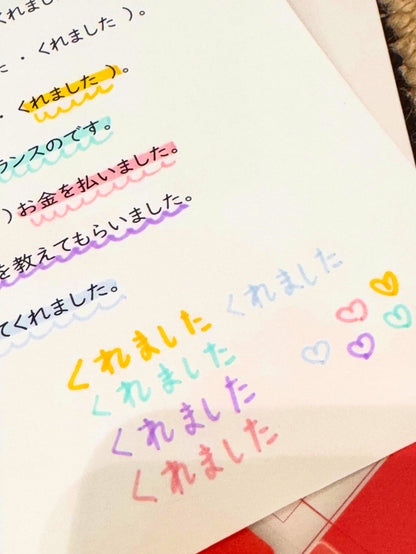 くれました
・くれました )。
・くれました )。
ランスのです。
) お金を払いました。
を教えてもらいました。
てくれました。
くれました
くれました
くれました
くれました
くれました